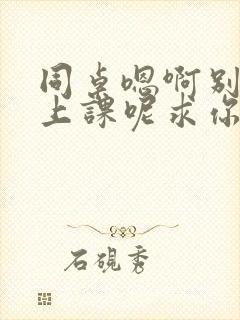 同桌嗯啊别
上課呢求你
石硯秀